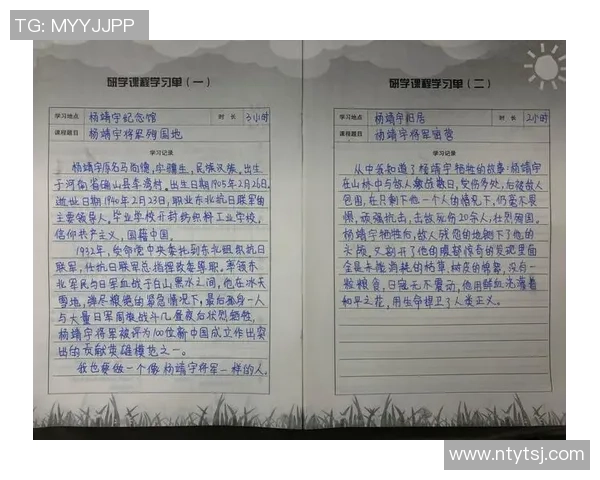 TG: MYYJJPP
研学课程学习单（一）
学习地点 杨靖宇纪念馆 时长 3小时
课程题目 杨靖宇将军殉国地
学习记录
杨靖宇原名马尚德，字骥生，民族汉族。出生
于河南省确山县李湾村。出生日期1905年2月26日。
逝世日期1940年2月23日，职业东北抗日联军的
主要领导人。毕业学校开封纺织工业学校，
信仰共产主义，国籍中国。
1932年，受命党中央委托到东北组织抗日
联军，任抗日联军总指挥政委等职。率领东
北军民与日军血战于白山黑水之间，他在冰天
雪地，弹尽粮绝的紧急情况下，最后孤身一人
与大量日军周旋战斗几昼夜后壮烈牺牲。
杨靖宇将军被评为100位新中国成立作出突
出的贡献英雄模范之一。
我也要做一个像杨靖宇将军一样的人。
研学课程学习单（二）
学习地点 杨靖宇旧居 时长 2小时
课程题目 杨靖宇将军密营
学习记录
从中我知道了杨靖宇牺牲的故事：杨靖宇
在山林中与敌人激战数日，受伤多处，后被敌人
包围，在只剩下他一个人的情况下，仍毫不畏
惧，顽强抗击，击敌死伤20余人，壮烈殉国。
杨靖宇牺牲后，敌人残忍的地割下了他的
头颅，又剖开了他的腹部惊奇的发现里面
全是未能消耗的枯草，树皮的棉絮，没有一
粒粮食，日寇无不震动，他用鲜血浇灌着
和平之花，用生命捍卫了人类正义。
www.ntytsj.com